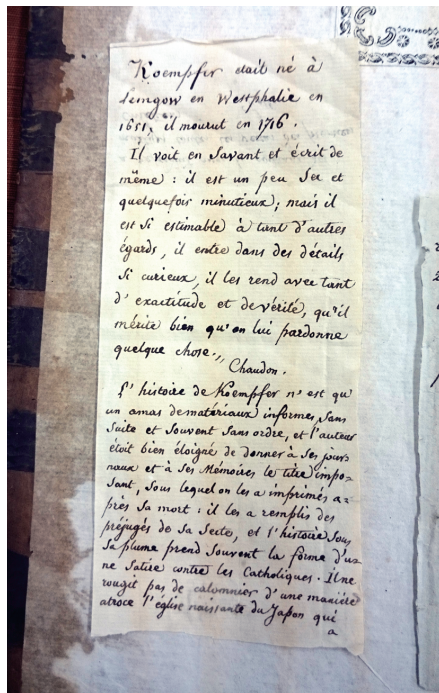 Koempfer etait né à
Lemgow en Westphalie en
1651, il mourut en 1716.
Il voit en Savant et écrit de
même : il est un peu Sec et
quelquefois minutieux; mais il
est si estimable à tant d'autres
égards, il entre dans des détails
si curieux, il les rend avec tant
d'exactitude et de vérité, qu'il
mérite bien qu'on lui pardonne
quelque chose.,,
Chaudon.
L'histoire de Koempfer n'est qu'
un amas de matériaux informes, Sans
Suite et Souvent Sans ordre, et l'auteur
étoit bien éloigné de donner à Ses jour-
naux et à Ses Mémoires le titre impo-
Sant, Sous lequel on les a imprimés a-
près Sa mort : il les a remplis des
préjugés de Sa Secte, et l'histoire Sous
Sa plume prend Souvent la forme d'u-
ne Satire contre les Catholiques. Il ne
rougit pas de calomnier d'une manière
atroce l'église naissante du Japon qui
a